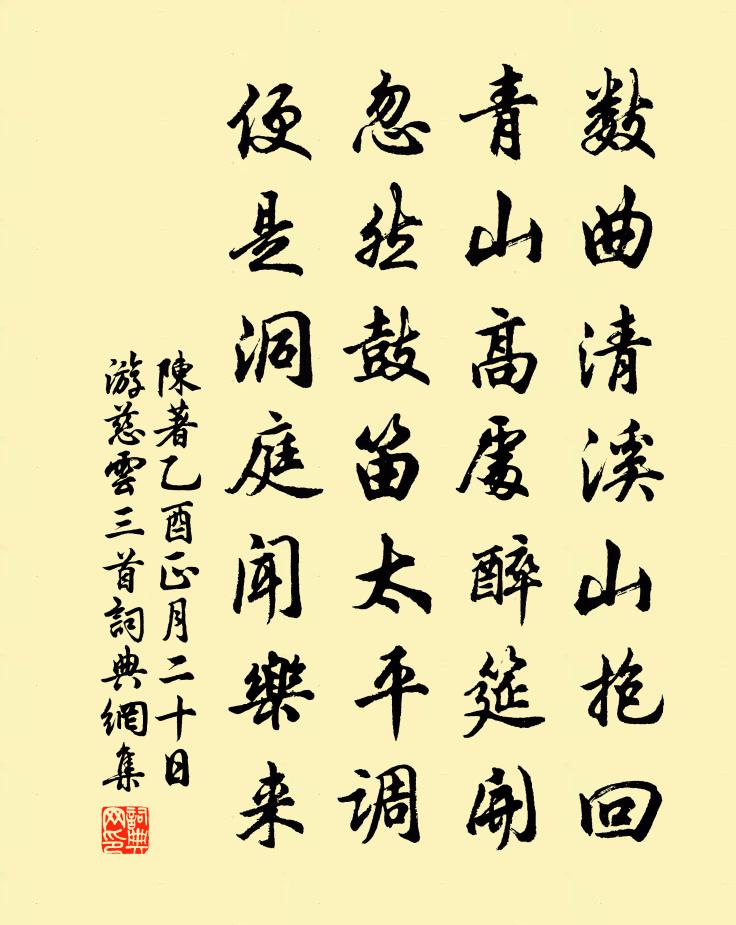 数曲清溪山抱回
青山高處醉筵開
忽然鼓笛太平调
便是洞庭闻樂来
陳著乙酉正月二十日
游慈雲三首詞典網集
詞典
网印